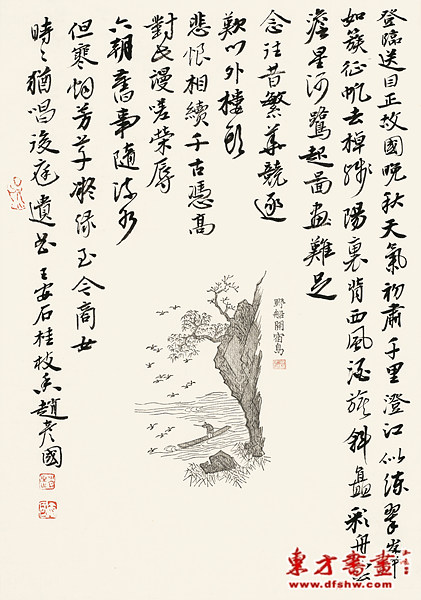 登臨送目正故國晚秋天氣初肅千里澄江似練翠峰
如簇征帆去棹殘陽裏背西風酒旗斜矗彩舟雲
澹星河鷺起圖畫難足
念往昔繁華競逐
歎門外樓頭
悲恨相續千古憑高
對此謾嗟榮辱
六朝舊事隨流水
但寒烟芳草凝緑至今商女
時〻猶唱後庭遺曲 王安石桂枝香趙彥國
野船宿鳥
東方書畫
www.dfshw.com